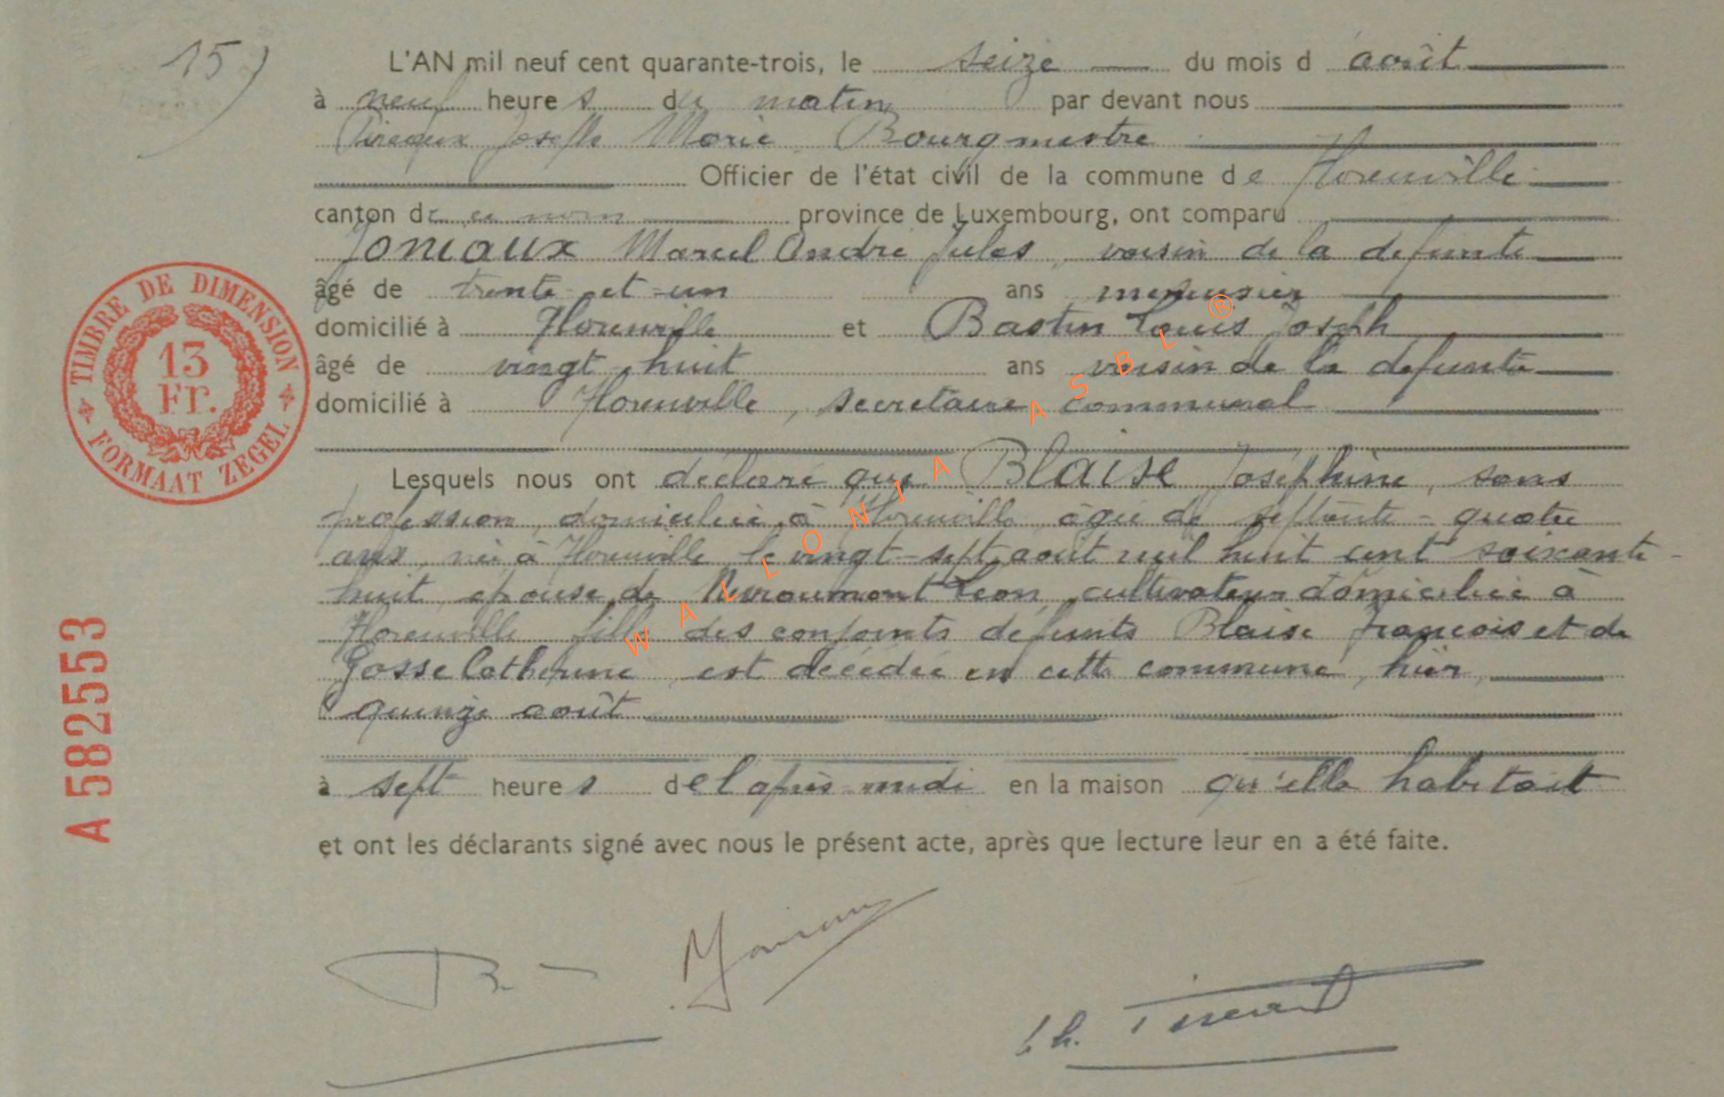 15)
L'AN mil neuf cent quarante-trois, le seize du mois d août
à neuf heures du matin par devant nous
Joseph Marie Bourgmestre
Officier de l'état civil de la commune de Florenville
canton de ce nom province de Luxembourg, ont comparu
Joniaux Marcel André Jules, voisin de la defunte
âgé de trente et un ans menuisier
domicilié à Florenville et Bastin Louis Joseph
âgé de vingt huit ans voisin de la defunte
domicilié à Florenville, secretaire communal
Lesquels nous ont déclaré que Blaise Joséphine, sans
profession, domiciliée à Florenville, âgée de septante-quatre
ans, née à Florenville le vingt-sept août mil huit cent soixante-
huit, épouse de Léon, cultivateur domiciliée à
Florenville fille des conjoints défunts Blaise François et de
Gosse Catherine, est décédée en cette commune, hier,
quinze août
à sept heures de l'après-midi en la maison qu'elle habitait
et ont les déclarants signé avec nous le présent acte, après que lecture leur en a été faite.
TIMBRE DE DIMENSION
13
Fr.
FORMAAT ZEGEL
A 582553
WALLONIA ASBL ®